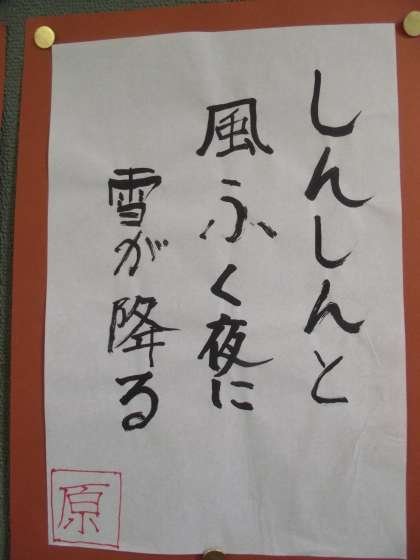 しんしんと
風ふく夜に
雪が降る
原